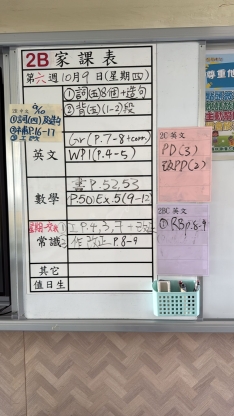 2B 家課表
第六週10月9日(星期四)
①詞(五)8個+造句
②背(五)(1-2)段
Gr(P.7-8+corr.)
英文 WP1(P.4-5)
數學
書P.52,53
P.50)Ex.5(9-12)
常識
P.4,3,7+改正
作改正P.8-9
其它
值日生
9/10
①詞(四)
P.16-17
2C 英文
PD(3)
改PD(2)
2BC 英文
①RB p.8-9
尊重他